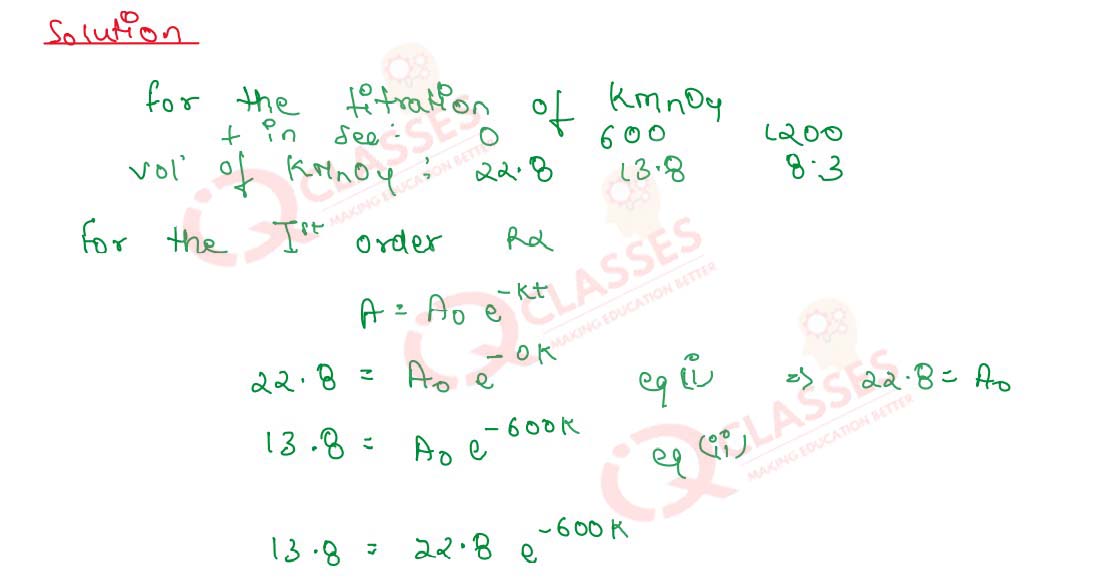 Solution
for the titration of KMnO4
t in sec: 0 600 1200
vol of KMnO4: 22.8 13.8 8.3
for the Ist order Rx
A = A0 e^-Kt
22.8 = A0 e^-0K eq (i) => 22.8 = A0
13.8 = A0 e^-600K eq (ii)
13.8 = 22.8 e^-600K
IQ CLASSES
MAKING EDUCATION BETTER
IQ CLASSES
MAKING EDUCATION BETTER
IQ CLASSES
MAKING EDUCATION BETTER